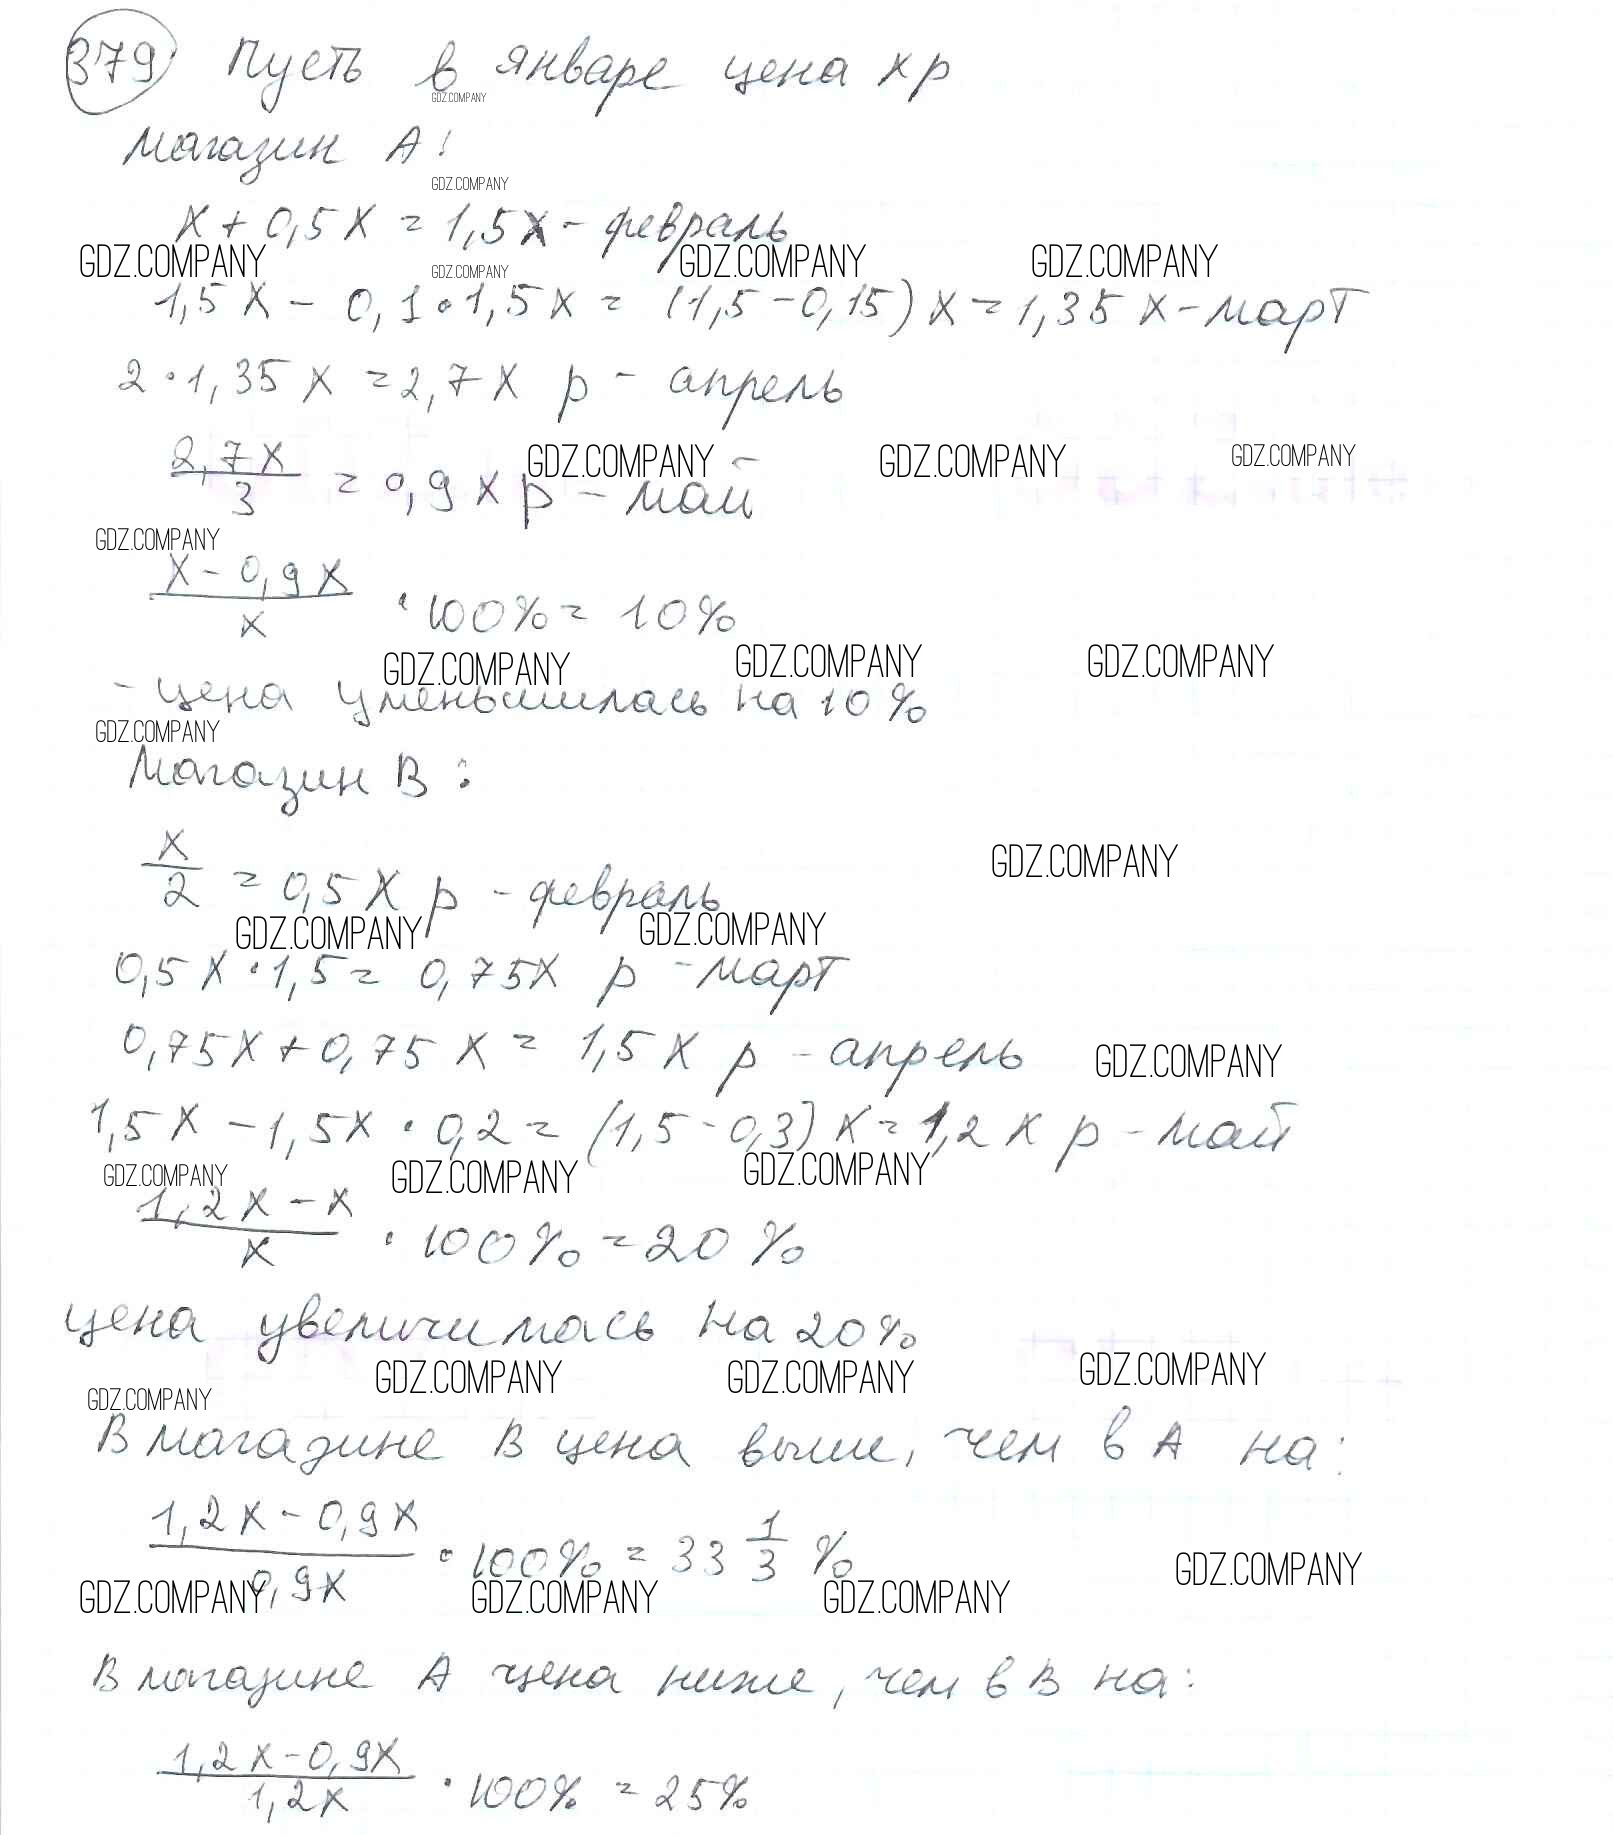 379 Пусть в январе цена x р
GDZ.COMPANY
Магазин А:
GDZ.COMPANY
x + 0,5x = 1,5x - февраль
GDZ.COMPANY GDZ.COMPANY GDZ.COMPANY GDZ.COMPANY
1,5x - 0,1·1,5x = (1,5-0,15)x = 1,35x - март
2·1,35x = 2,7x р - апрель
GDZ.COMPANY GDZ.COMPANY GDZ.COMPANY
2,7x/3 = 0,9x р - май
GDZ.COMPANY
x-0,9x/x · 100% = 10%
GDZ.COMPANY GDZ.COMPANY GDZ.COMPANY
- цена уменьшилась на 10%
GDZ.COMPANY
Магазин В:
GDZ.COMPANY
x/2 = 0,5x р - февраль
GDZ.COMPANY GDZ.COMPANY
0,5x·1,5 = 0,75x р - март
0,75x+0,75x = 1,5x р - апрель
GDZ.COMPANY
1,5x - 1,5x · 0,2 = (1,5-0,3)x = 1,2x р - май
GDZ.COMPANY GDZ.COMPANY GDZ.COMPANY
1,2x-x/x · 100% = 20%
цена увеличилась на 20%
GDZ.COMPANY GDZ.COMPANY GDZ.COMPANY GDZ.COMPANY
В магазине В цена выше, чем в А на:
1,2x-0,9x/0,9x · 100% = 33 1/3 %
GDZ.COMPANY GDZ.COMPANY GDZ.COMPANY GDZ.COMPANY
В магазине А цена ниже, чем в В на:
1,2x-0,9x/1,2x · 100% = 25%